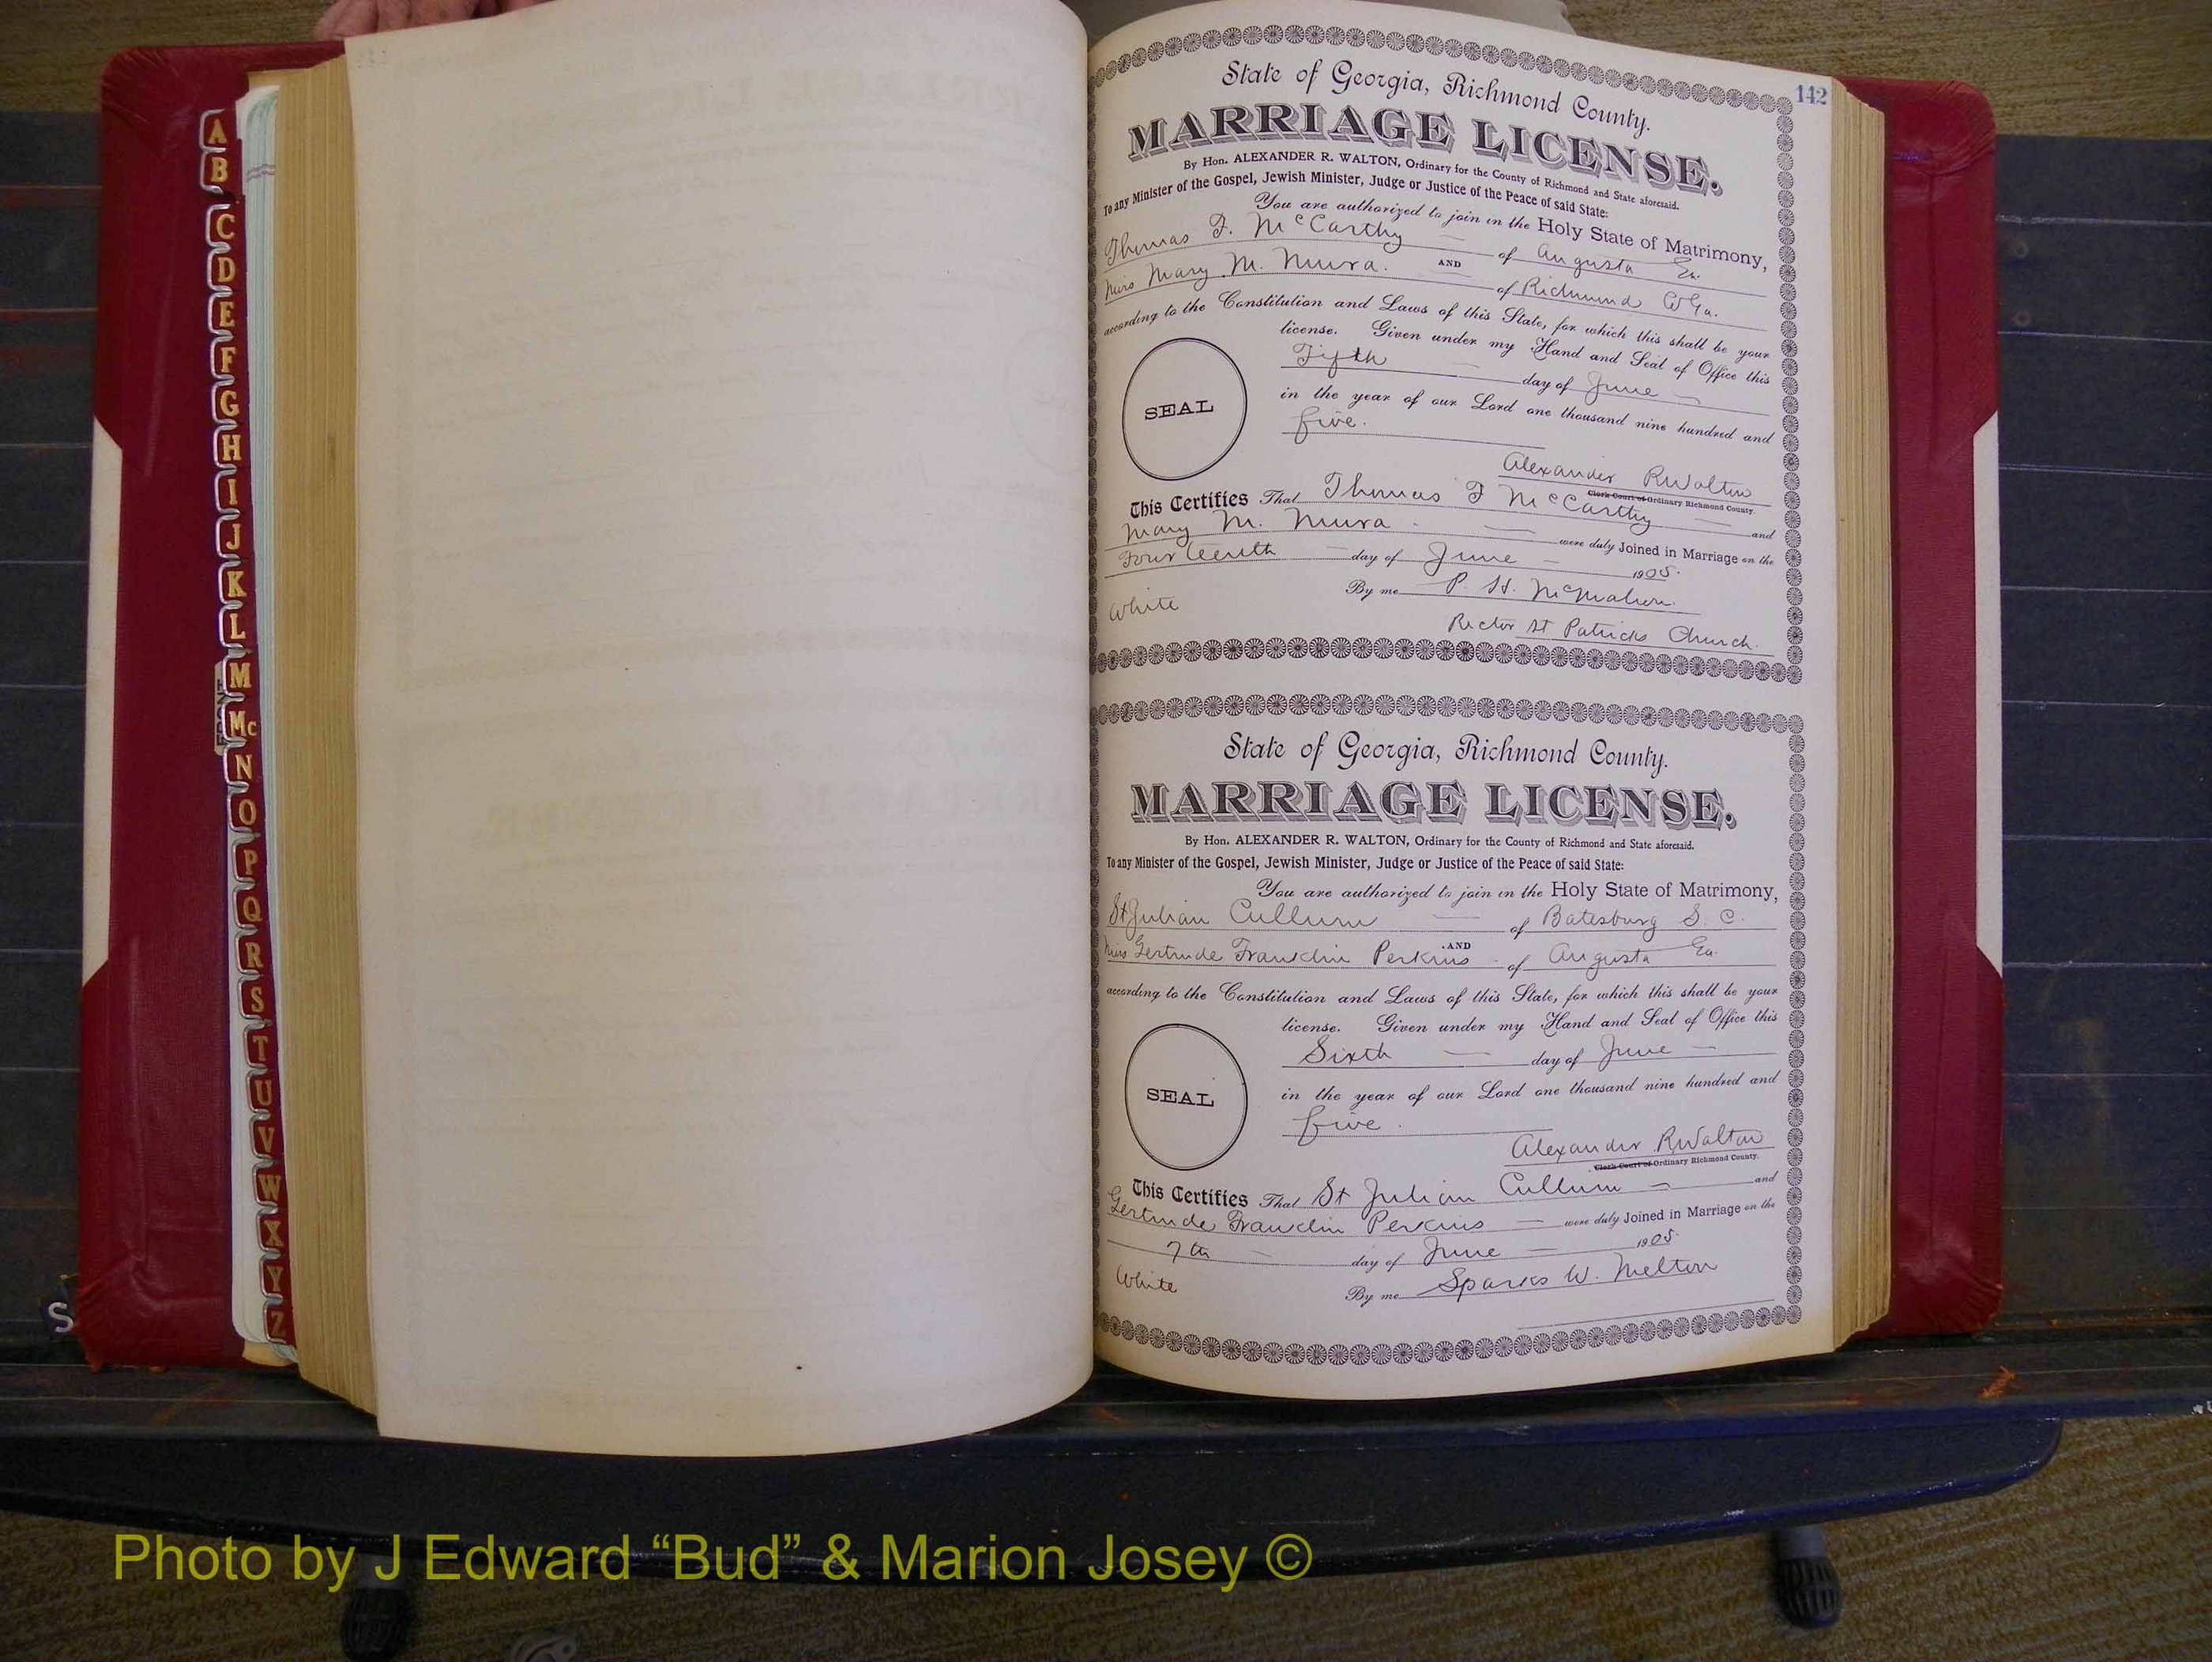 A
B
C
D
E
F
G
H
I
J
K
L
M
Mc
N
O
P
Q
R
S
T
U
V
W
X
Y
Z
142
State of Georgia, Richmond County.
MARRIAGE LICENSE.
By Hon. ALEXANDER R. WALTON, Ordinary for the County of Richmond and State aforesaid.
To any Minister of the Gospel, Jewish Minister, Judge or Justice of the Peace of said State:
You are authorized to join in the Holy State of Matrimony,
Thomas F. McCarthy of Augusta Ga.
AND
Miss Mary M. Mura. of Richmond Co Ga.
according to the Constitution and Laws of this State, for which this shall be your
license. Given under my Hand and Seal of Office this
Fifth day of June
SEAL
in the year of our Lord one thousand nine hundred and
five.
Alexander R Walton
Clerk Court of Ordinary Richmond County.
This Certifies That Thomas F McCarthy and
Mary M. Mura were duly Joined in Marriage on the
Fourteenth day of June 1905.
By me P. H. McMahon.
White
Rector St Patricks Church.
State of Georgia, Richmond County.
MARRIAGE LICENSE.
By Hon. ALEXANDER R. WALTON, Ordinary for the County of Richmond and State aforesaid.
To any Minister of the Gospel, Jewish Minister, Judge or Justice of the Peace of said State:
You are authorized to join in the Holy State of Matrimony,
St Julian Cullum of Batesburg S. C.
AND
Miss Gertrude Franklin Perkins of Augusta Ga.
according to the Constitution and Laws of this State, for which this shall be your
license. Given under my Hand and Seal of Office this
Sixth day of June
SEAL
in the year of our Lord one thousand nine hundred and
five.
Alexander R Walton
Clerk Court of Ordinary Richmond County.
This Certifies That St Julian Cullum and
Gertrude Franklin Perkins were duly Joined in Marriage on the
7th day of June 1905.
White
By me Sparks W. Melton
Photo by J Edward “Bud” & Marion Josey ©